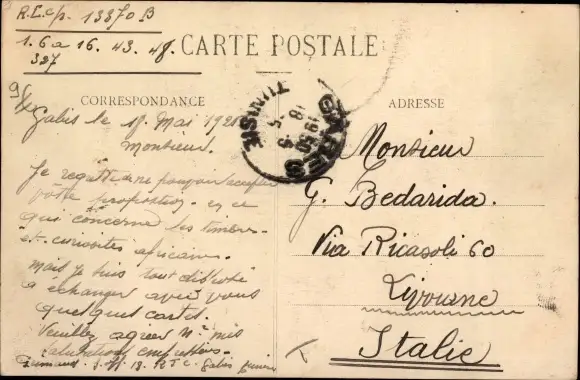 R.L.cp. 13370 B
1. 6 a 16. 43. 48.
327
CARTE POSTALE
CORRESPONDANCE
ADRESSE
Gabès le 18 Mai 192
Monsieur.
Je regrette ne pouvoir accepter
vôtre proposition en ce
qui concerne les timbres
et curiosités africaines.
Mais je suis tout disposé
à echanger avec vous
quelques cartes.
Veuillez agréer Mr mes
salutations empressées.
Gabès
TUNISIE
GABES
Monsieur
G. Bedarida.
Via Ricasoli 60
Livourne
Italie